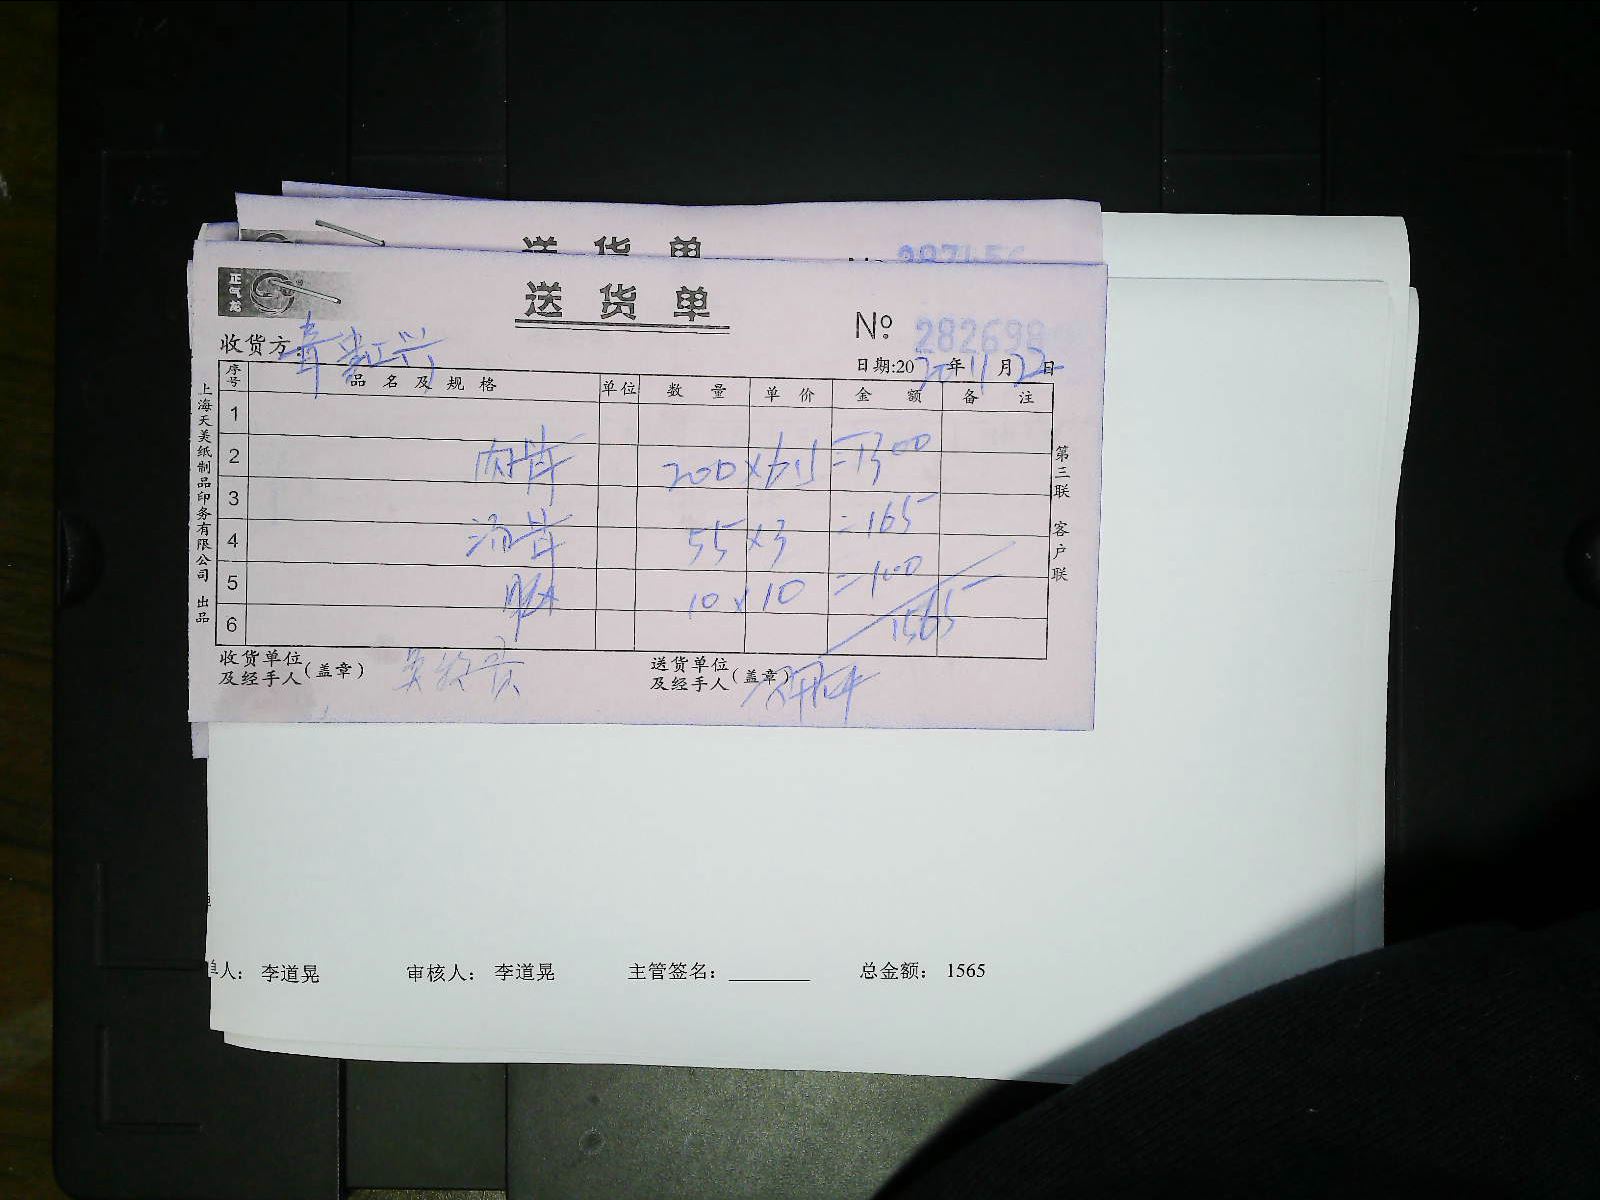 送货单
正气龙
送货单
№ 282698
收货方:
日期:2020年11月22日
序号 品名及规格 单位 数量 单价 金额 备注
1
2 200 × 6.5 = 1300
3
4 55 × 3 = 165
5 10 × 10 = 100
6 1565
收货单位及经手人(盖章)
送货单位及经手人(盖章)
上海天美纸制品印务有限公司 出品
第三联 客户联
单人: 李道晃 审核人: 李道晃 主管签名: 总金额: 1565